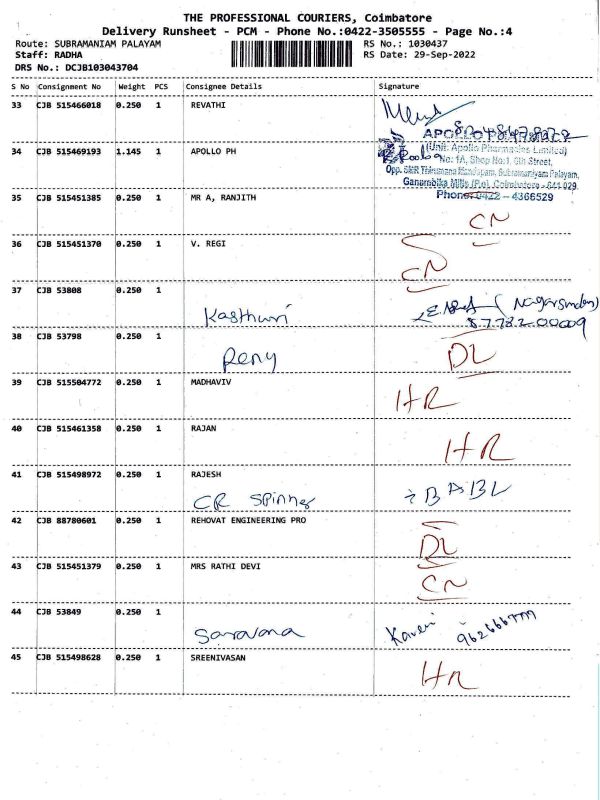 THE PROFESSIONAL COURIERS, Coimbatore
Delivery Runsheet - PCM - Phone No.:0422-3505555 - Page No.:4
Route: SUBRAMANIAM PALAYAM RS No.: 1030437
Staff: RADHA RS Date: 29-Sep-2022
DRS No.: DCJB103043704
S No Consignment No Weight PCS Consignee Details Signature
33 CJB 515466018 0.250 1 REVATHI
34 CJB 515469193 1.145 1 APOLLO PH
(Unit: Apollo Pharmacies Limited)
No: 1A, Shop No:1, 6th Street,
Opp. SKR Thirumana Mandapam, Subramaniyam Palayam,
Ganambika Mills (P.o), Coimbatore - 641 029.
Phone: 0422 - 4366529
35 CJB 515451385 0.250 1 MR A, RANJITH CN
36 CJB 515451370 0.250 1 V. REGI CN
37 CJB 53808 0.250 1
Kasthuri
38 CJB 53798 0.250 1
Reny DL
39 CJB 515504772 0.250 1 MADHAVIV HR
40 CJB 515461358 0.250 1 RAJAN HR
41 CJB 515498972 0.250 1 RAJESH
CR Spinner
42 CJB 88780601 0.250 1 REHOVAT ENGINEERING PRO DL
43 CJB 515451379 0.250 1 MRS RATHI DEVI CN
44 CJB 53849 0.250 1
Saravana Kaveri
45 CJB 515498628 0.250 1 SREENIVASAN HR